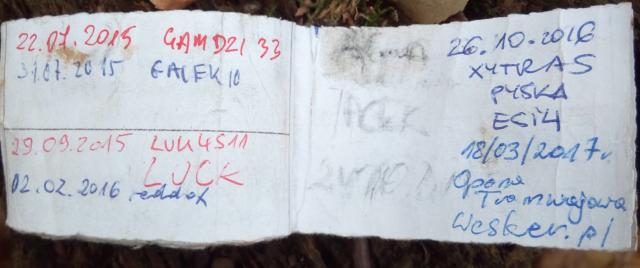 22.07.2015 GAMDZI 33
31.07.2015 GALEK10
29.09.2015 LUK4S11
LUCK
02.02.2016 reddox
JACEK
26.10.2016
XYTRAS
PYSKA
ECI4
18/03/2017r.
Opona
Tramwajowa
Wesker.pl